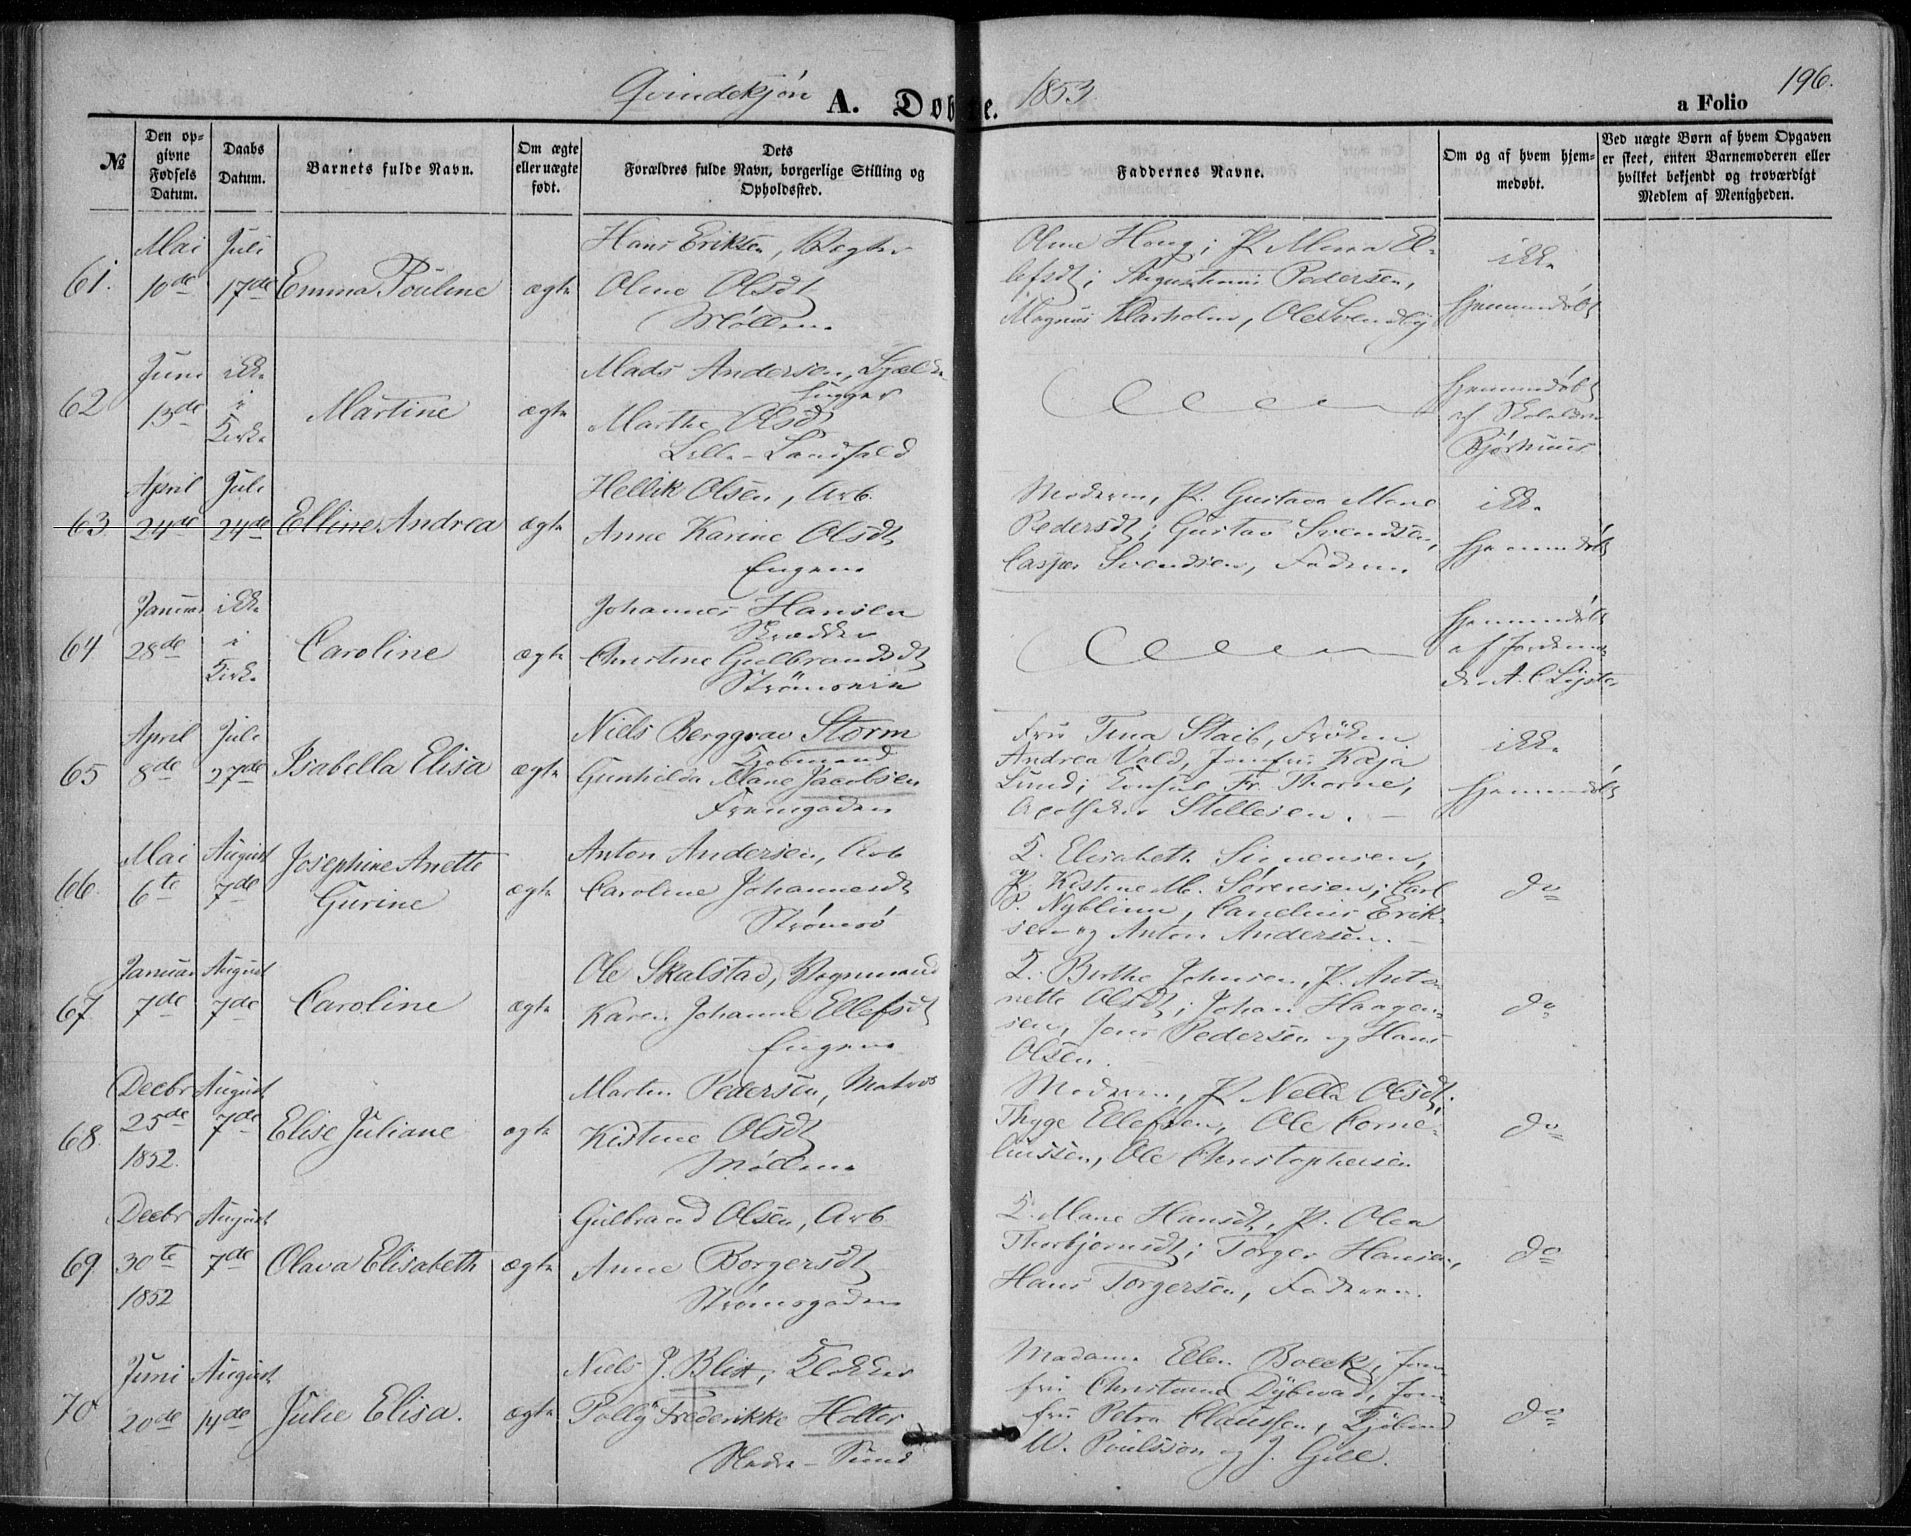 Qvindekjøn A. Døbte. 1853. a Folio 196.
№
Den opgivne Fødsels Datum.
Daabs Datum.
Barnets fulde Navn.
Om ægte eller uægte født.
Dets Forældres fulde Navn, borgerlige Stilling og Opholdssted.
Faddernes Navne.
Om og af hvem hjemmedøbt.
Ved uægte Børn af hvem Opgaven er skeet, enten Barnemoderen eller hvilket bekjendt og troværdigt Medlem af Menigheden.
61.
Mai
10de
Juli
17de
Emma Pouline
ægte
Hans Eriksen,
Oline Olsdt
Møllen
Oline Houg; P. Maria El-
lefsdt; Augustinus Pedersen,
Magnus Klarholm, Ole Svendby
ikke
hjemmedøbt
62
Juni
13de
ikke
i
Kirke
Martine
ægte
Mads Andersen,
Marthe Olsdt
Lille-Landfald
hjemmedøbt
af
Bjørhuus
63
April
24de
Juli
24de
Elline Andrea
ægte
Hellik Olsen, Arb.
Anne Karine Olsdt
Engene
Moderen, P. Gustava Marie
Pedersdt; Gustav Svendsen,
Casper Svendsen, Faderen
ikke
hjemmedøbt
64
Januar
28de
ikke
i
Kirke
Caroline
ægte
Johannes Hansen
Skrædder
Christine Gulbrandsdt
hjemmedøbt
af Jordemo-
der A. C.
65
April
8de
Juli
27de
Isabella Elisa
ægte
Niels Berggrav Storm
Kjøbmand
Gunhilda Marie Jacobsen
Fremgaden
Fru Tina Staib, Frøken
Andrea Vald, Jomfru Kaja
Lund; Consul Fr. Thorne,
Apotheker Stillesen.
ikke
hjemmedøbt
66.
Mai
6te
August
7de
Josephine Anette
Gurine
ægte
Anton Andersen, Arb
Caroline Johannesdt
Strømsø
K. Elisabeth Simensen,
P. Kistine M. Sørensen; Carl
P. Nyblinn, Candius Erik-
sen og Anton Andersen.
do
67.
Januar
7de
August
7de
Caroline
ægte
Ole Skalstad, Vognmand
Karen Johanne Ellefsdt
Engene
K. Birthe Johnsen, P. Anto-
nette Olsdt; Johan Haagen-
sen, Jens Pedersen og Hans
Olsen.
do
68.
Decbr
25de
1852.
August
7de
Elise Juliane
ægte
Martin Pedersen, Matros
Kistine Olsdt
Møllen
Moderen, P. Nella Olsdt,
Thyge Ellefsen, Ole Corne-
liussen, Ole Christophersen
do
69.
Decbr
30te
1852
August
7de
Olava Elisabeth
ægte
Gulbrand Olsen, Arb
Anne Borgersdt
Strømsgaden
K. Marie Hansdt, P. Olea
Thorbjørnsdt; Torger Hansen,
Hans Torgersen, Faderen.
do
70
Juni
20de
August
14de
Julie Elisa.
ægte
Niels J. Blix, Klokker
Polly Frederikke Holter
-Sund
Madame Ellen Boeck, Jom-
fru Christiane Dybwad, Jom-
fru Petra Claussen, Kjøbmd
W. Poulsson og J. Gill.
do